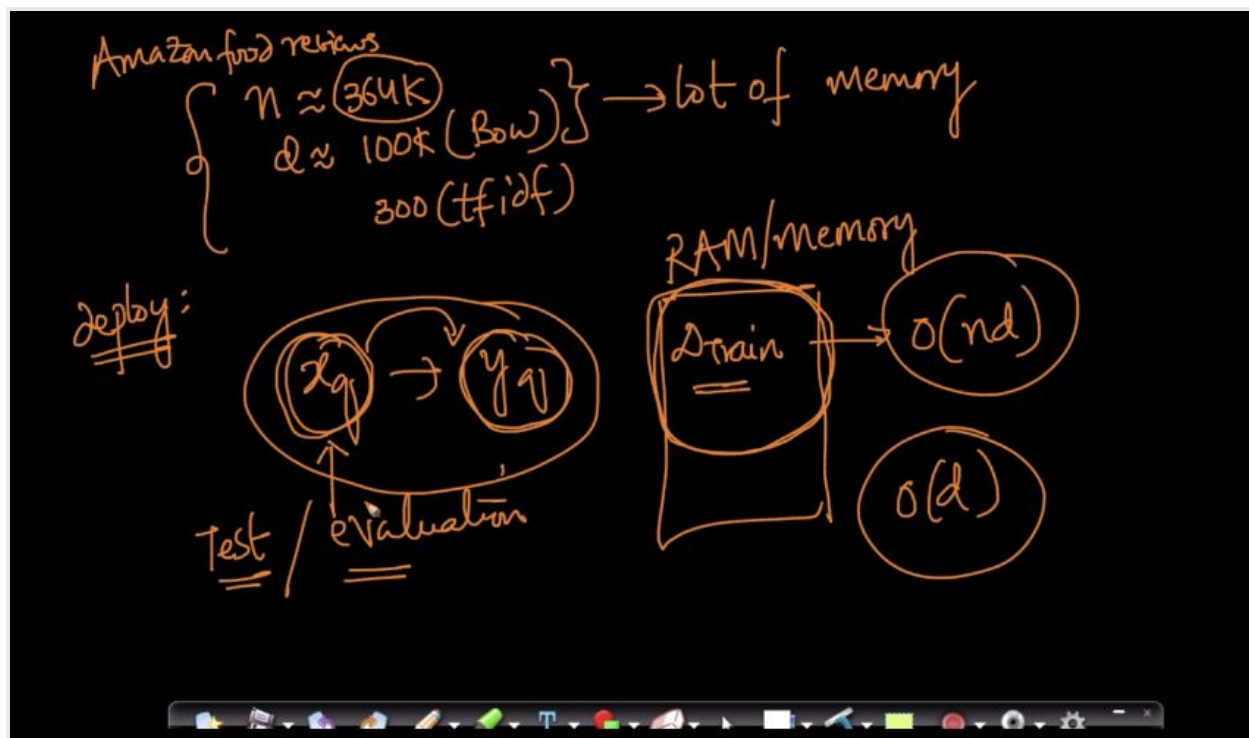 Amazon food reviews
n ≈ 364K
d ≈ 100K (BoW) → lot of memory
300 (tfidf)
RAM/memory
deploy:
xq → yq
Dtrain → O(nd)
O(d)
Test / evaluation
T